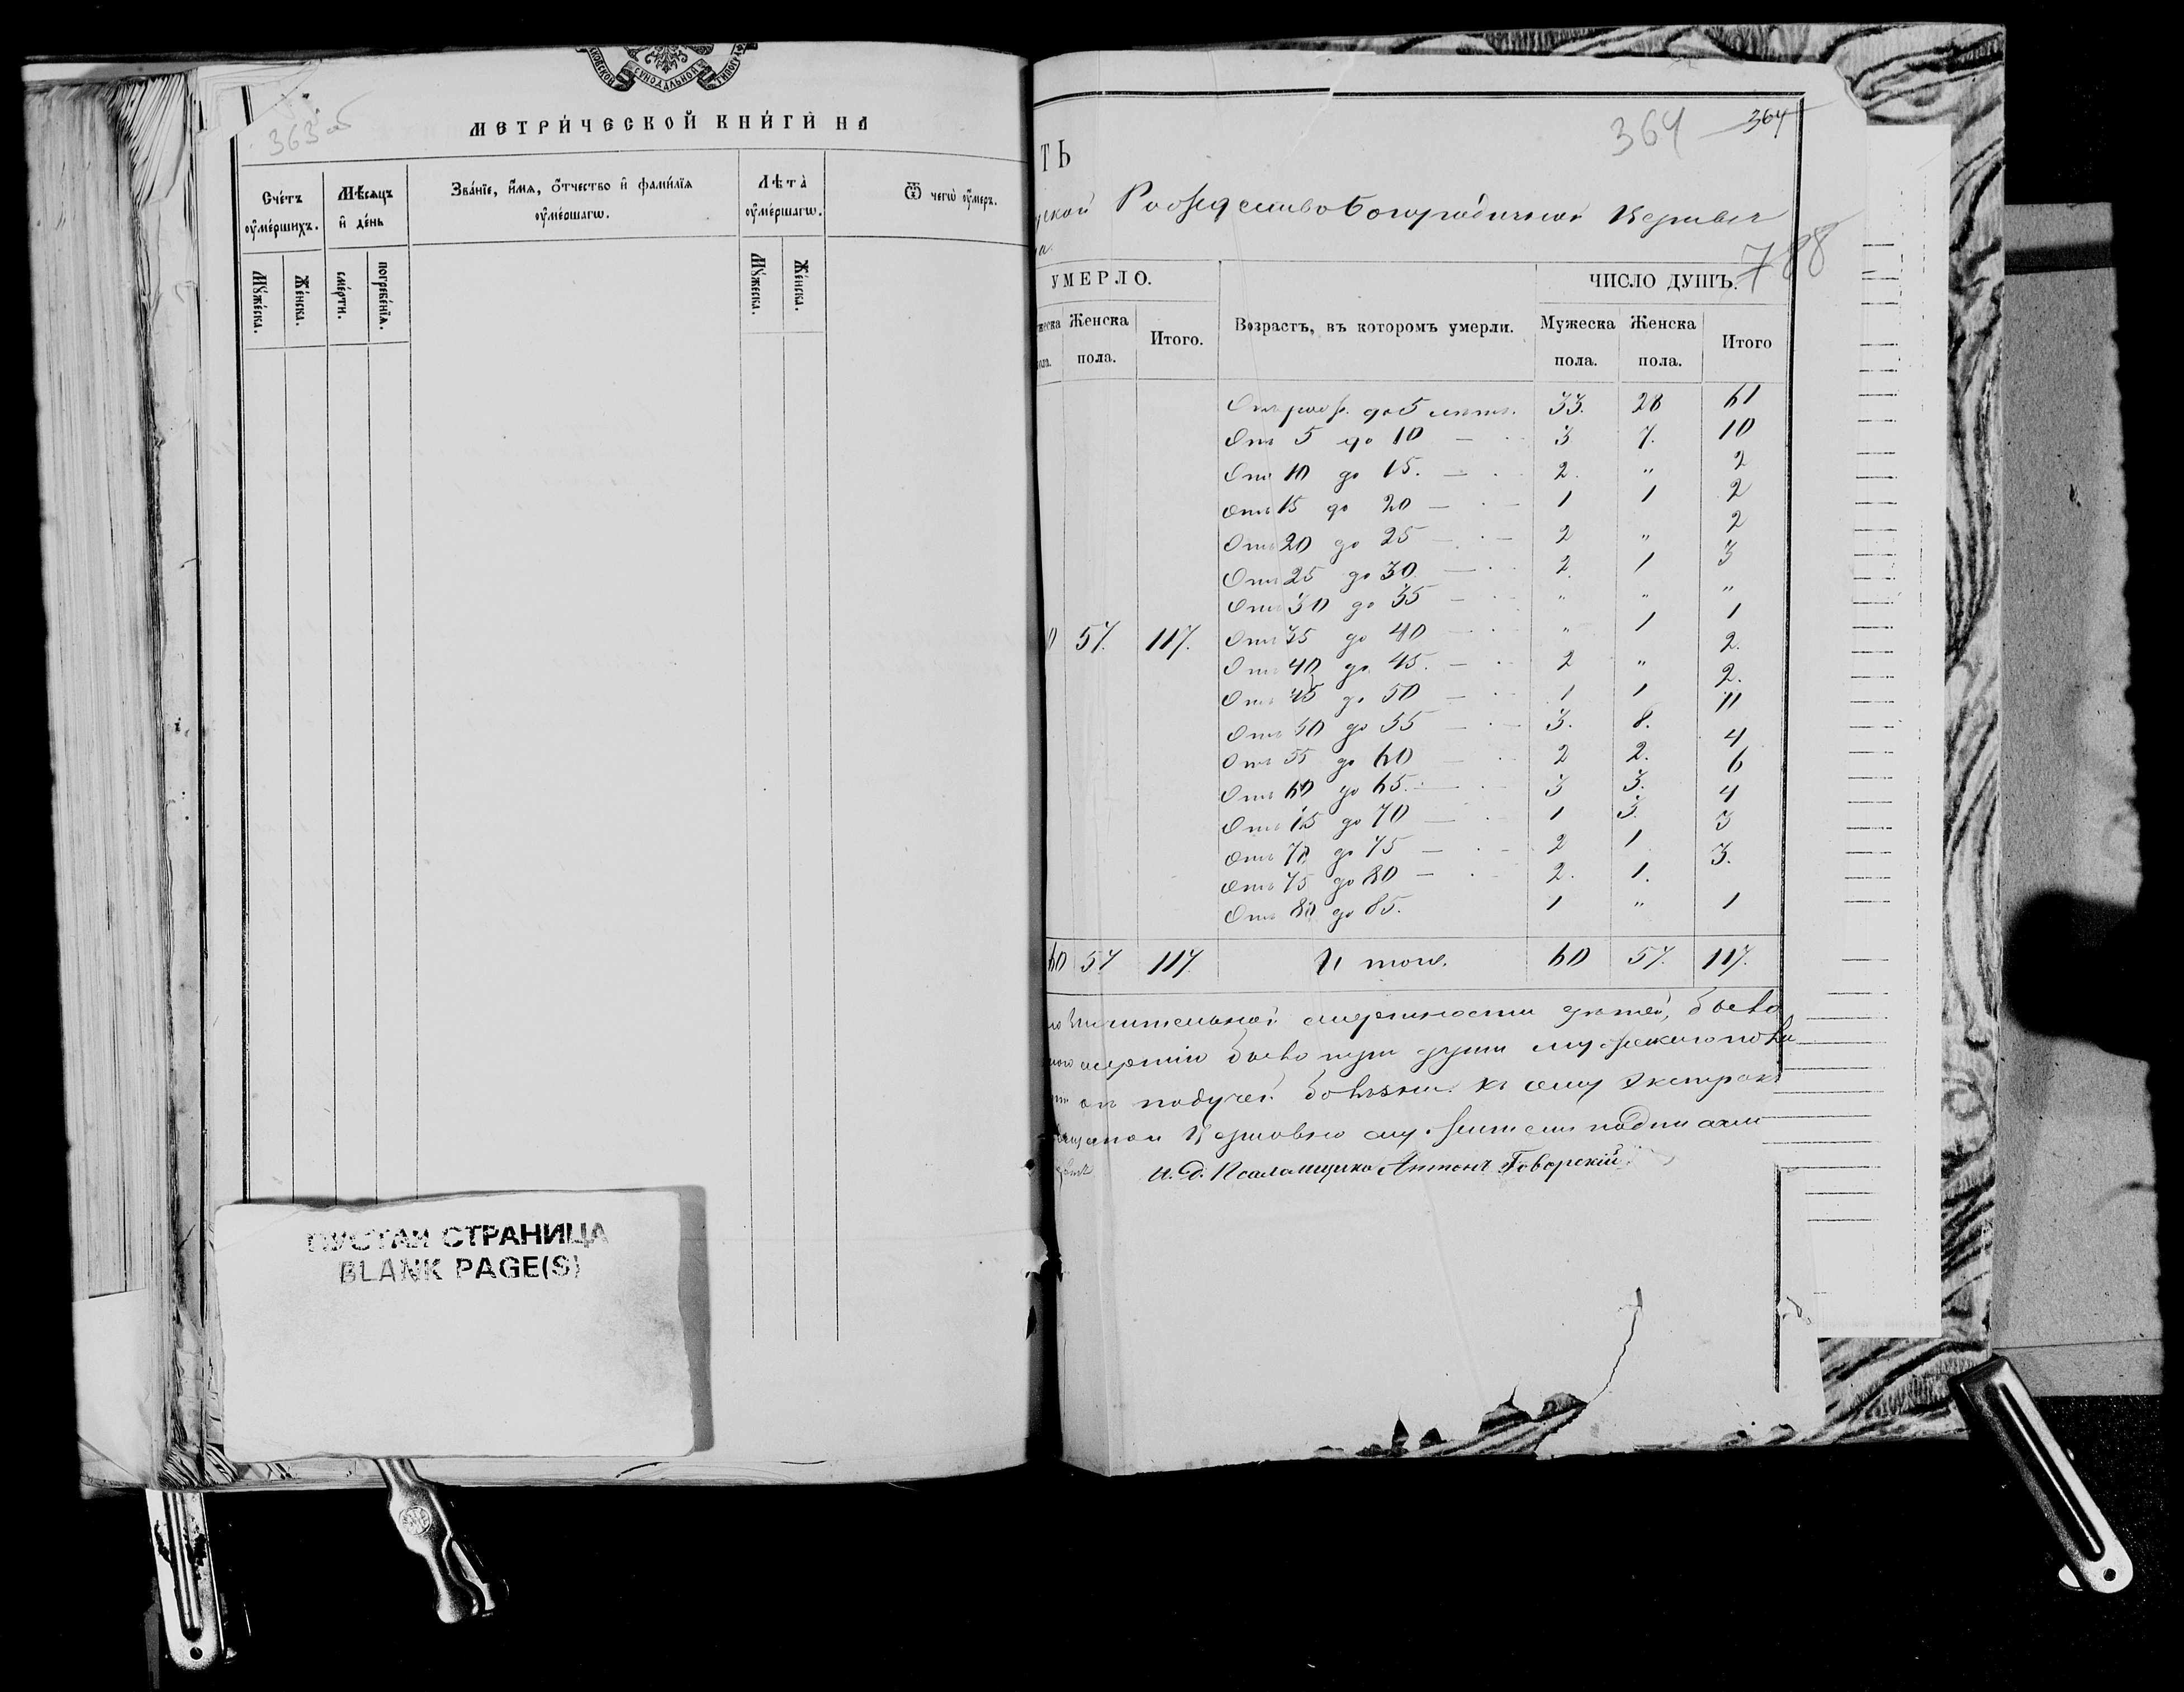 СѴНОДАЛЬНОЙ
363 об
МЕТРИ́ЧЕСКОЙ КНИ́ГИ НА
Сче́тъ оу҆ме́ршихъ.
Мѣ́сяцъ и҆ де́нь
Зва́нїе, и҆́мѧ, ѻ҆́тчество и҆ фами́лїѧ оу҆ме́ршагѡ.
Лѣта̀ оу҆ме́ршагѡ.
Ѿ чегѡ̀ оу҆́меръ.
Мꙋ́жеска.
Же́нска.
сме́рти.
погребе́нїѧ.
Мꙋ́жеска.
Же́нска.
ПУСТАЯ СТРАНИЦА
BLANK PAGE(S)
364
364
ТЬ
ской Рождествобогородичной Церкви
788
УМЕРЛО.
Возрастъ, въ которомъ умерли.
ЧИСЛО ДУШЪ.
Женска пола.
Итого.
Мужеска пола.
Женска пола.
Итого
От рожд. до 5 летъ. 33. 28 61
От 5 до 10 — 3 7. 10
От 10 до 15. — 2. " 2
Отъ 15 до 20 — 1 1 2
Отъ 20 до 25 — 2 " 2
Отъ 25 до 30 — 2 1 3
Отъ 30 до 35 — " " "
57. 117. Отъ 35 до 40 — " 1 1
Отъ 40 до 45. — 2 " 2.
Отъ 45 до 50 — 1 1 2.
Отъ 50 до 55 — 3. 8. 11
Отъ 55 до 60 — 2 2. 4
Отъ 60 до 65. — 3 3. 6
Отъ 65 до 70 — 1 3. 4
Отъ 70 до 75 — 2 1 3
Отъ 75 до 80 — 2. 1. 3.
Отъ 80 до 85. 1 " 1
60 57 117. Итого. 60 57. 117.
значительной смертности детей, было
смертию было пуст души мужскаго пола
от падучей болезни. Къ сему экстракт
Церковно служители подписали
И. д. Псаломщика Антонъ Говорскій